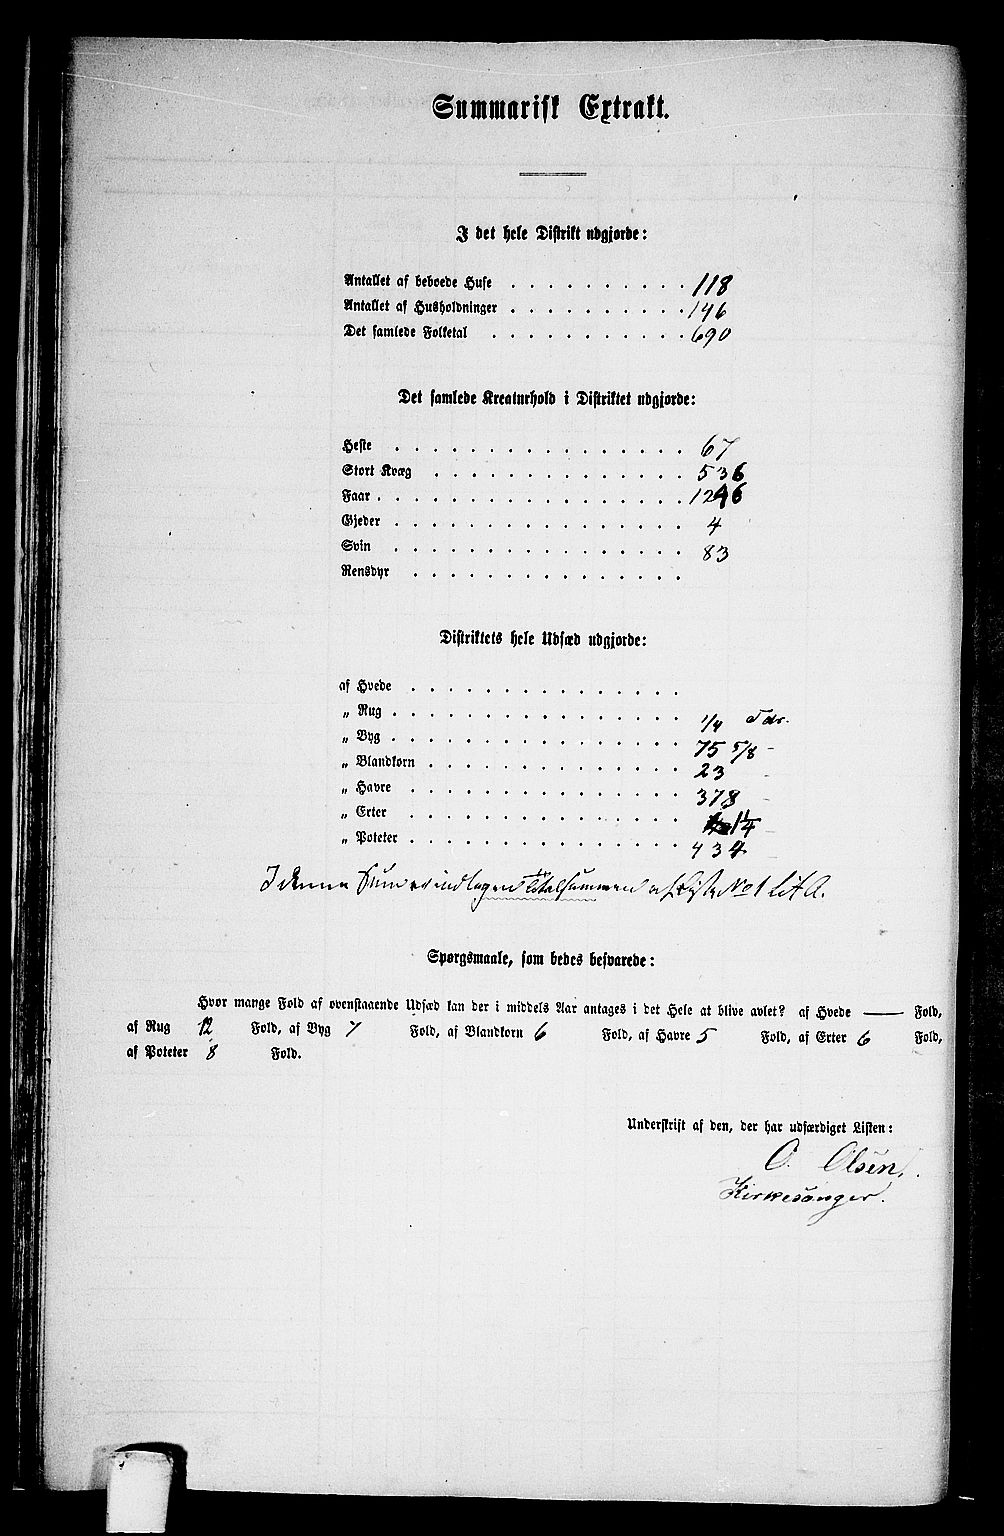 Summarisk Extrakt.
I det hele Distrikt udgjorde:
Antallet af beboede Huse . . . . . . . . . . 118
Antallet af Husholdninger . . . . . . . . . . 146
Det samlede Folketal . . . . . . . . . . . 690
Det samlede Kreaturhold i Distriktet udgjorde:
Heste . . . . . . . . . . . . . . . . 67
Stort Kvæg . . . . . . . . . . . . . . 536
Faar . . . . . . . . . . . . . . . . . 1246
Gjeder . . . . . . . . . . . . . . . . 4
Svin . . . . . . . . . . . . . . . . 83
Rensdyr . . . . . . . . . . . . . . .
Distriktets hele Udsæd udgjorde:
af Hvede . . . . . . . . . . . . . . .
„ Rug . . . . . . . . . . . . . . . . 1/4 Tdr.
„ Byg . . . . . . . . . . . . . . . . 75 5/8 -
„ Blandkorn . . . . . . . . . . . . . . 23 -
„ Havre . . . . . . . . . . . . . . . 378 -
„ Erter . . . . . . . . . . . . . . . 1 1/4 -
„ Poteter . . . . . . . . . . . . . . . 434
I denne Sum er indtagen Totalsummen af Liste No 1 Lit A.
Spørgsmaale, som bedes besvarede:
Hvor mange Fold af ovenstaaende Udsæd kan der i middels Aar antages i det Hele at blive avlet? af Hvede — Fold,
af Rug 12 Fold, af Byg 7 Fold, af Blandkorn 6 Fold, af Havre 5 Fold, af Erter 6 Fold,
af Poteter 8 Fold.
Underskrift af den, der har udfærdiget Listen:
O. Olsen,
Kirkesanger.